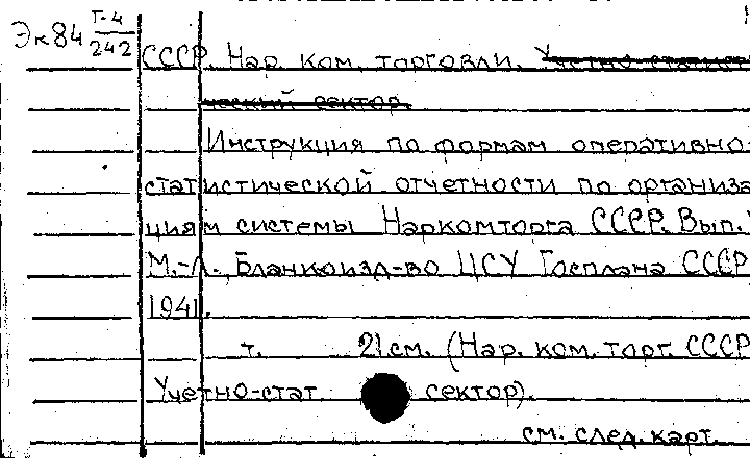 Эк84 Г-4/242
СССР. Нар. ком. торговли. Учетно-статисти
ческий сектор.
Инструкция по формам оперативно-
статистической отчетности по организа
циям системы Наркомторга СССР. Вып.
М.-Л., Бланкоизд-во ЦСУ Госплана СССР
1941.
т. 21 см. (Нар. ком. торг. СССР
Учетно-стат. сектор).
см. след. карт.